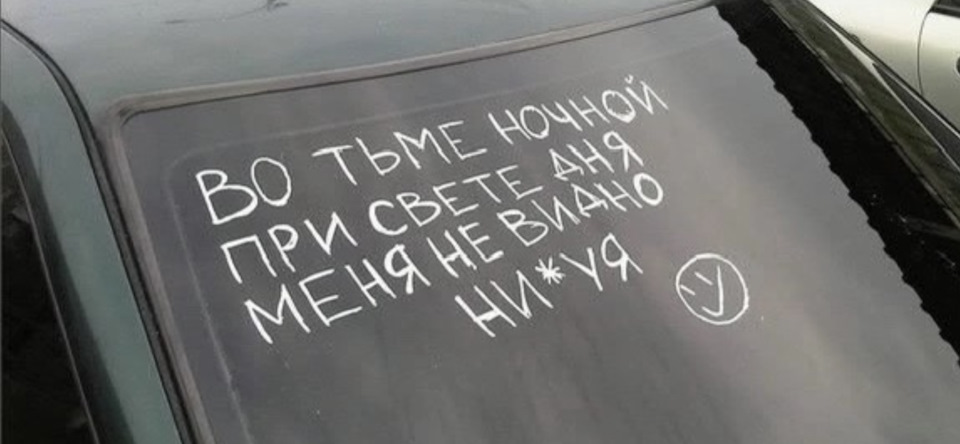 ВО ТЬМЕ НОЧНОЙ
ПРИ СВЕТЕ ДНЯ
МЕНЯ НЕ ВИДНО
НИ*УЯ